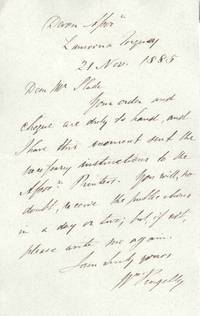 Devon Assocn.
Lamorna Torquay
21 Nov. 1885
Dear Mr. Slade
Your order and
cheque are duly to hand, and
I have this moment sent the
necessary instructions to the
Assocn. Printers. You will, no
doubt, receive the publications
in a day or two; but, if not,
please write me again.
I am truly yours
Wm. Pengelly